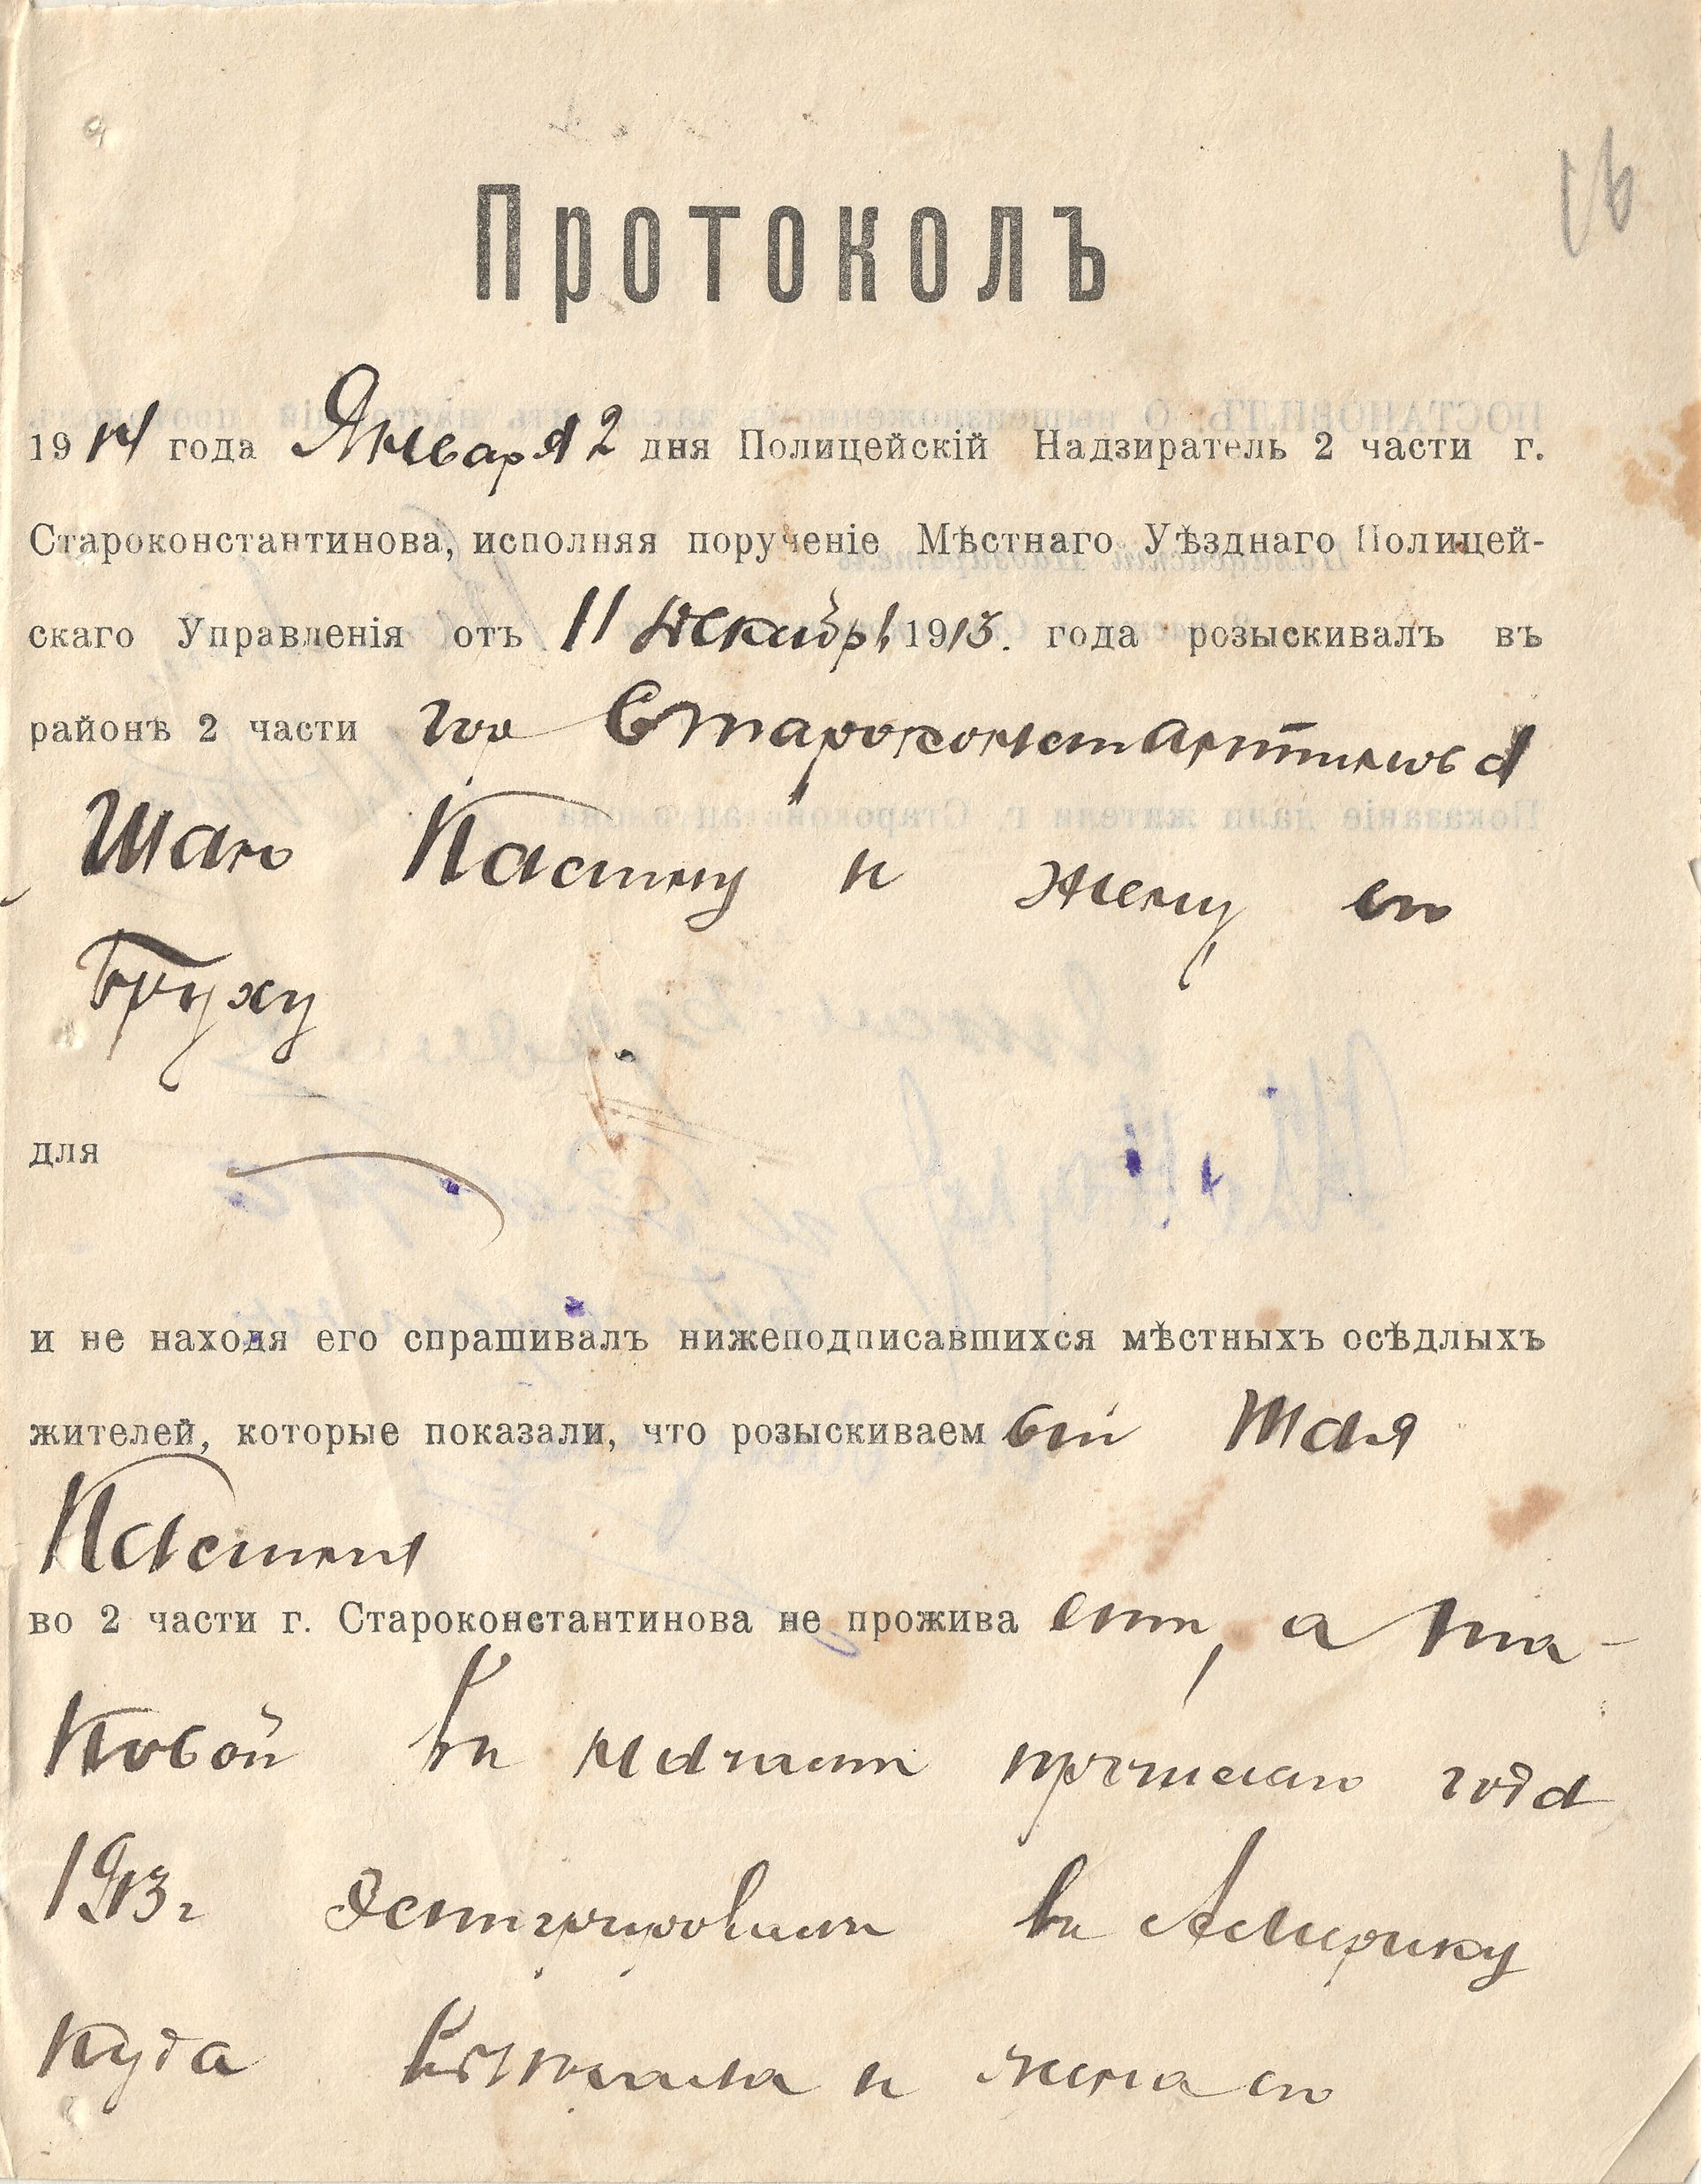 16
Протоколъ
1914 года Января 2 дня Полицейскій Надзиратель 2 части г.
Староконстантинова, исполняя порученіе Мѣстнаго Уѣзднаго Полицей-
скаго Управленія отъ 11 Декабря 1913. года розыскивалъ въ
районѣ 2 части гор Староконстантинова
Шаю и жену его
Бруху
для
и не находя его спрашивалъ нижеподписавшихся мѣстныхъ осѣдлыхъ
жителей, которые показали, что розыскиваемый Шая
во 2 части г. Староконстантинова не проживаетъ, а та-
ковой въ началѣ прошлаго года
1913г въ Америку
куда и жена его